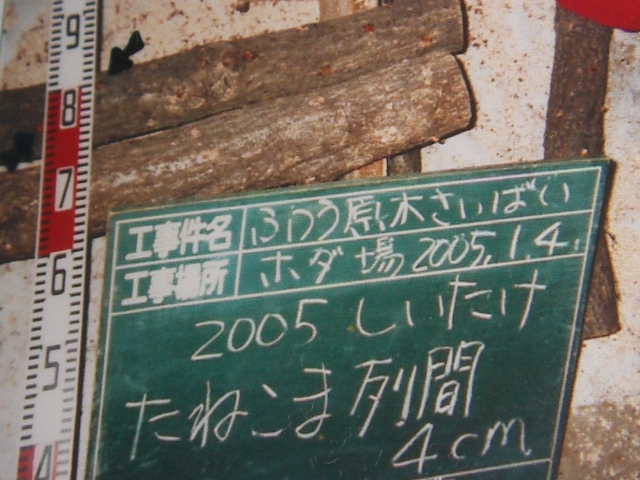 9
8
7
6
5
4
工事件名 ふつう原木さいばい
工事場所 ホダ場 2005.1.4.
2005 しいたけ
たねこま列間
4cm